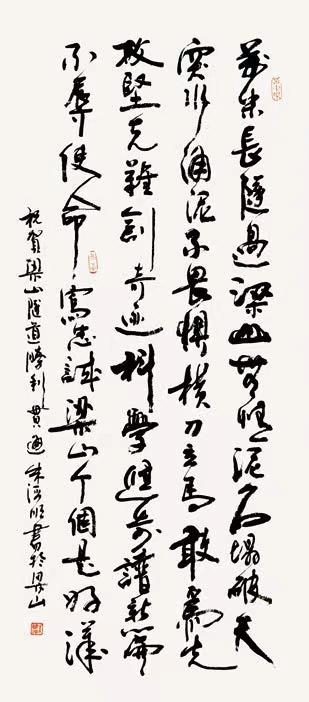 萬米長隧過梁山泥石塌破天
突水涌泥不畏懼橫刀立馬敢爲先
攻堅克難創奇迹科學進步譜新篇
不辱使命寫忠誠梁山个個是好漢
祝賀梁山隧道勝利貫通朱書於梁山